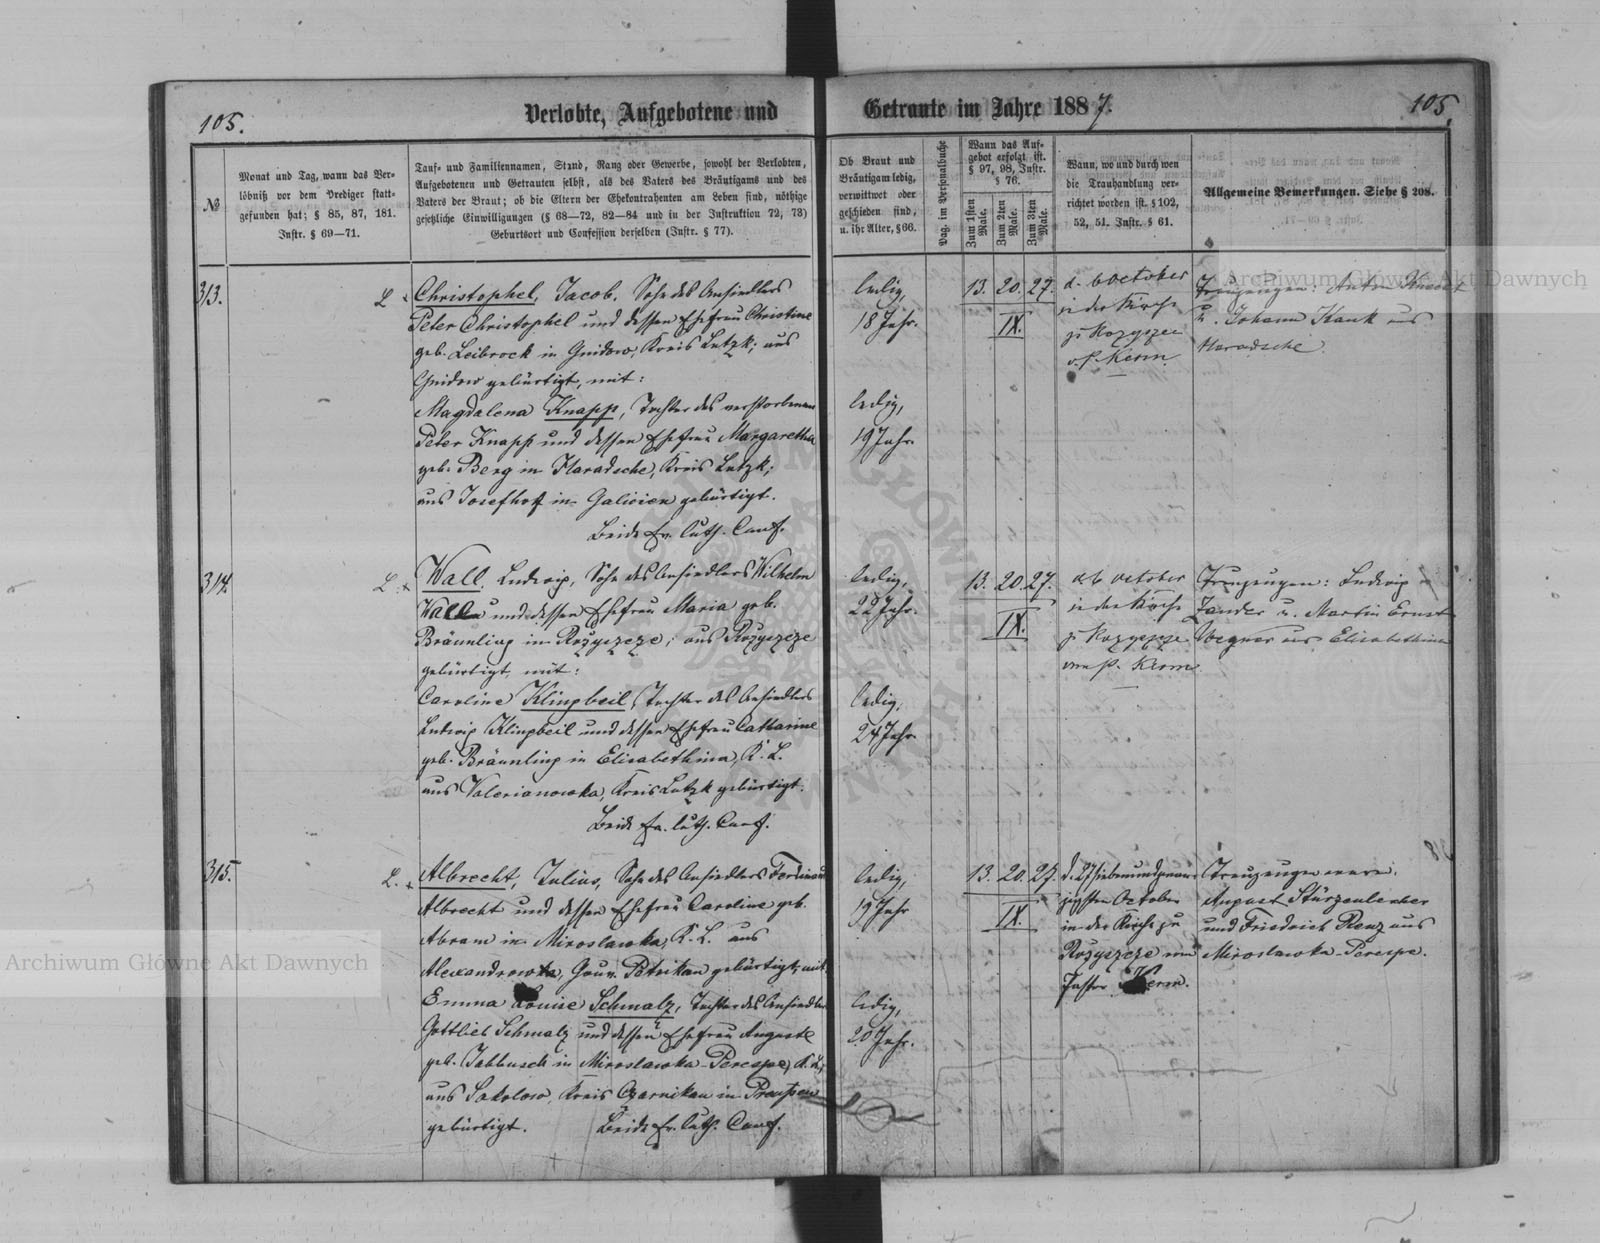 105.
Verlobte, Aufgebotene und
Getraute im Jahre 1887.
105.
№
Monat und Tag, wann das Ver-
löbniß vor dem Prediger statt-
gefunden hat; § 85, 87, 181.
Instr. § 69—71.
Tauf- und Familiennamen, Stand, Rang oder Gewerbe, sowohl der Verlobten,
Aufgebotenen und Getrauten selbst, als des Vaters des Bräutigams und des
Vaters der Braut; ob die Eltern der Ehekontrahenten am Leben sind, nöthige
gesetzliche Einwilligungen (§ 68—72, 82—84 und in der Instruktion 72, 73)
Geburtsort und Confession derselben (Instr. § 77).
Ob Braut und
Bräutigam ledig,
verwittwet oder
geschieden sind,
u. ihr Alter, § 66.
Pag. im Personalbuche
Wann das Auf-
gebot erfolgt ist.
§ 97, 98, Instr.
§ 76.
Zum 1sten Male.
Zum 2ten Male.
Zum 3ten Male.
Wann, wo und durch wen
die Trauhandlung ver-
richtet worden ist. § 102,
52, 51. Instr. § 61.
Allgemeine Bemerkungen. Siehe § 208.
313.
L.
Christophel, Jacob, Sohn des Ansiedlers
Peter Christophel und dessen Ehefrau Christine
geb. Leibrock in Gnidow, Kreis Lutzk; aus
Gnidow gebürtigt, mit:
Magdalena Knapp, Tochter des verstorbenen
Peter Knapp und dessen Ehefrau Margaretha
geb. Berg in Haradsche, Kreis Lutzk;
aus Josefhof in Galizien gebürtigt.
Beide ev. luth. Conf.
ledig,
18 Jahr.
ledig,
19 Jahr.
13. 20. 27.
IX.
d. 6 October
in der Kirche
zu Rozyszcze
v. P. Kerm
Trauzeugen: Anton
u. Johann Kauk aus
Haradsche.
314.
L.
Wall, Ludwig, Sohn des Ansiedlers Wilhelm
Wall und dessen Ehefrau Maria geb.
Bräunling in Rozyszcze; aus Rozyszcze
gebürtigt, mit:
Caroline Klingbeil, Tochter des Ansiedlers
Ludwig Klingbeil und dessen Ehefrau Catharine
geb. Bräunling in Elisabethina, K. L.
aus Valerianowka, Kreis Lutzk gebürtigt.
Beide ev. luth. Conf.
ledig,
22 Jahr.
ledig,
24 Jahr.
13. 20. 27.
IX.
d. 6 October
in der Kirche
zu Rozyszcze
vom P. Kerm.
Trauzeugen: Ludwig
Zander u. Martin Ernst
Wegner aus Elisabethina
315.
L.
Albrecht, Julius, Sohn des Ansiedlers Ferdinand
Albrecht und dessen Ehefrau Caroline geb.
Abram in Miroslawka, K. L. aus
Alexandrowka, Gouv. Petrikau gebürtigt, mit
Emma Louise Schmalz, Tochter des Ansiedlers
Gottlieb Schmalz und dessen Ehefrau Auguste
geb. Jabbusch in Miroslawka-Perespe, K. L.,
aus Sokolow, Kreis Czarnikau in Preußen
gebürtigt. Beide ev. luth. Conf.
ledig,
19 Jahr
ledig,
20 Jahr.
13. 20. 27.
IX.
d. 27 siebenundzwan-
zigsten October
in der Kirche zu
Rozyszcze von
Pastor Kerm.
Trauzeugen waren:
August Stürzenbecher
und Friedrich Renz aus
Miroslawka-Perespe.
Archiwum Główne Akt Dawnych
Archiwum Główne Akt Dawnych